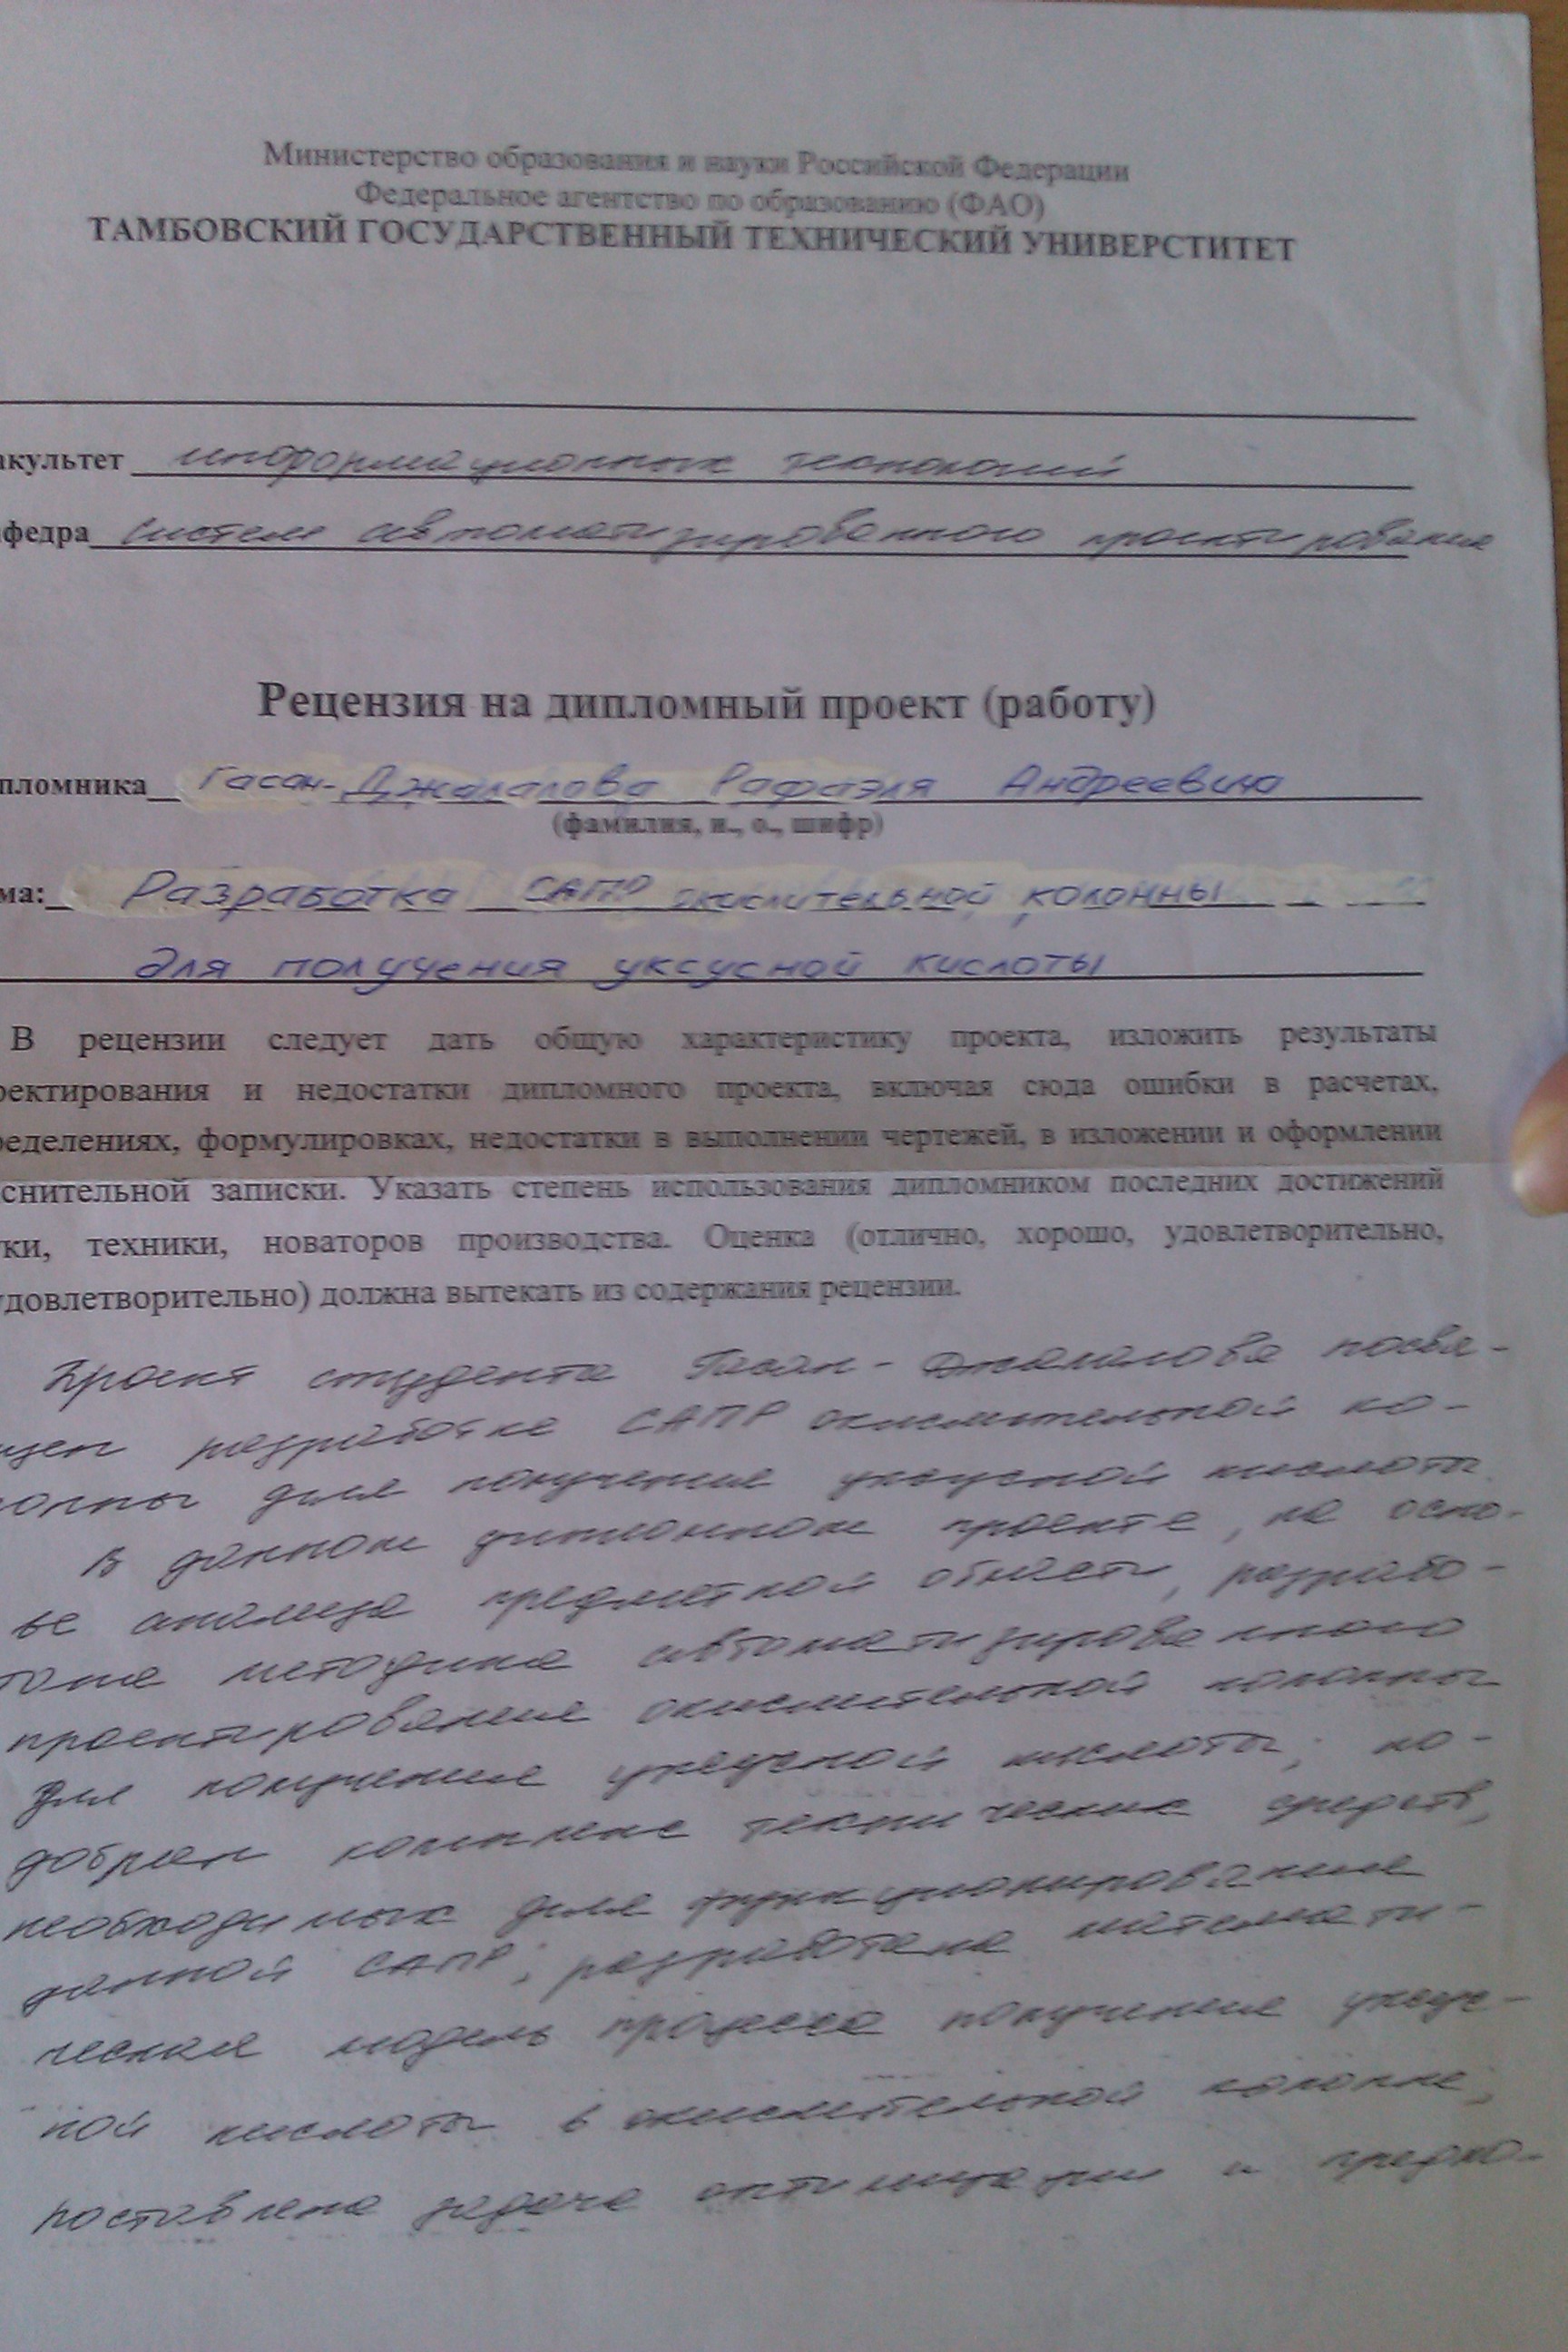 Министерство образования и науки Российской Федерации
Федеральное агентство по образованию (ФАО)
ТАМБОВСКИЙ ГОСУДАРСТВЕННЫЙ ТЕХНИЧЕСКИЙ УНИВЕРСТИТЕТ
акультет информационных технологий
федра систем автоматизированного проектирования
Рецензия на дипломный проект (работу)
пломника Гасан-Джалалова Рафаэля Андреевича
(фамилия, и., о., шифр)
ма: Разработка САПР окислительной колонны
для получения уксусной кислоты
В рецензии следует дать общую характеристику проекта, изложить результаты
ректирования и недостатки дипломного проекта, включая сюда ошибки в расчетах,
ределениях, формулировках, недостатки в выполнении чертежей, в изложении и оформлении
снительной записки. Указать степень использования дипломником последних достижений
ки, техники, новаторов производства. Оценка (отлично, хорошо, удовлетворительно,
удовлетворительно) должна вытекать из содержания рецензии.
Проект студента Гасан-Джалалова посвя-
щен разработке САПР окислительной ко-
лонны для получения уксусной кислоты
В данном дипломном проекте, на осно-
ве анализа предметной области, разрабо-
тана методика автоматизированного
проектирования окислительной колонны
для получения уксусной кислоты; по-
добран комплекс технических средств,
необходимых для функционирования
данной САПР; разработана математи-
ческая модель процесса получения уксус-
ной кислоты в окислительной колонне;
поставлена задача оптимизации и предло-